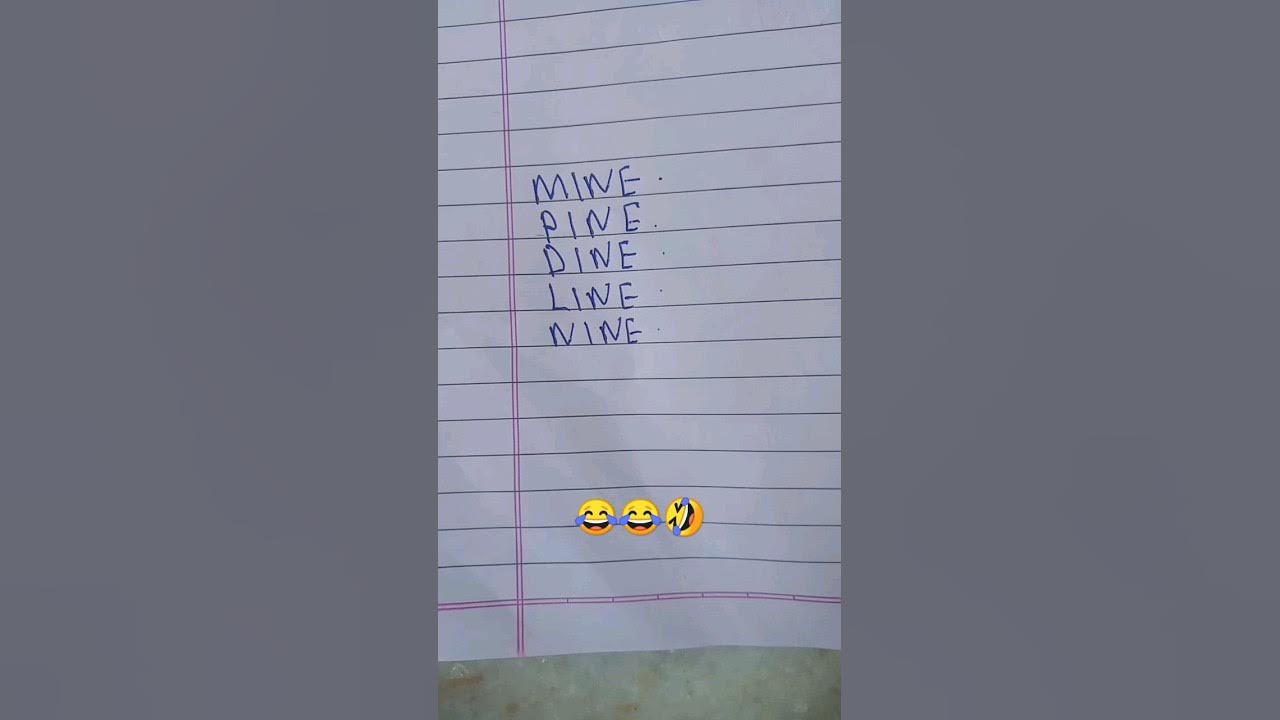 MINE.
PINE.
DINE.
LINE.
NINE.
😂😂🤣